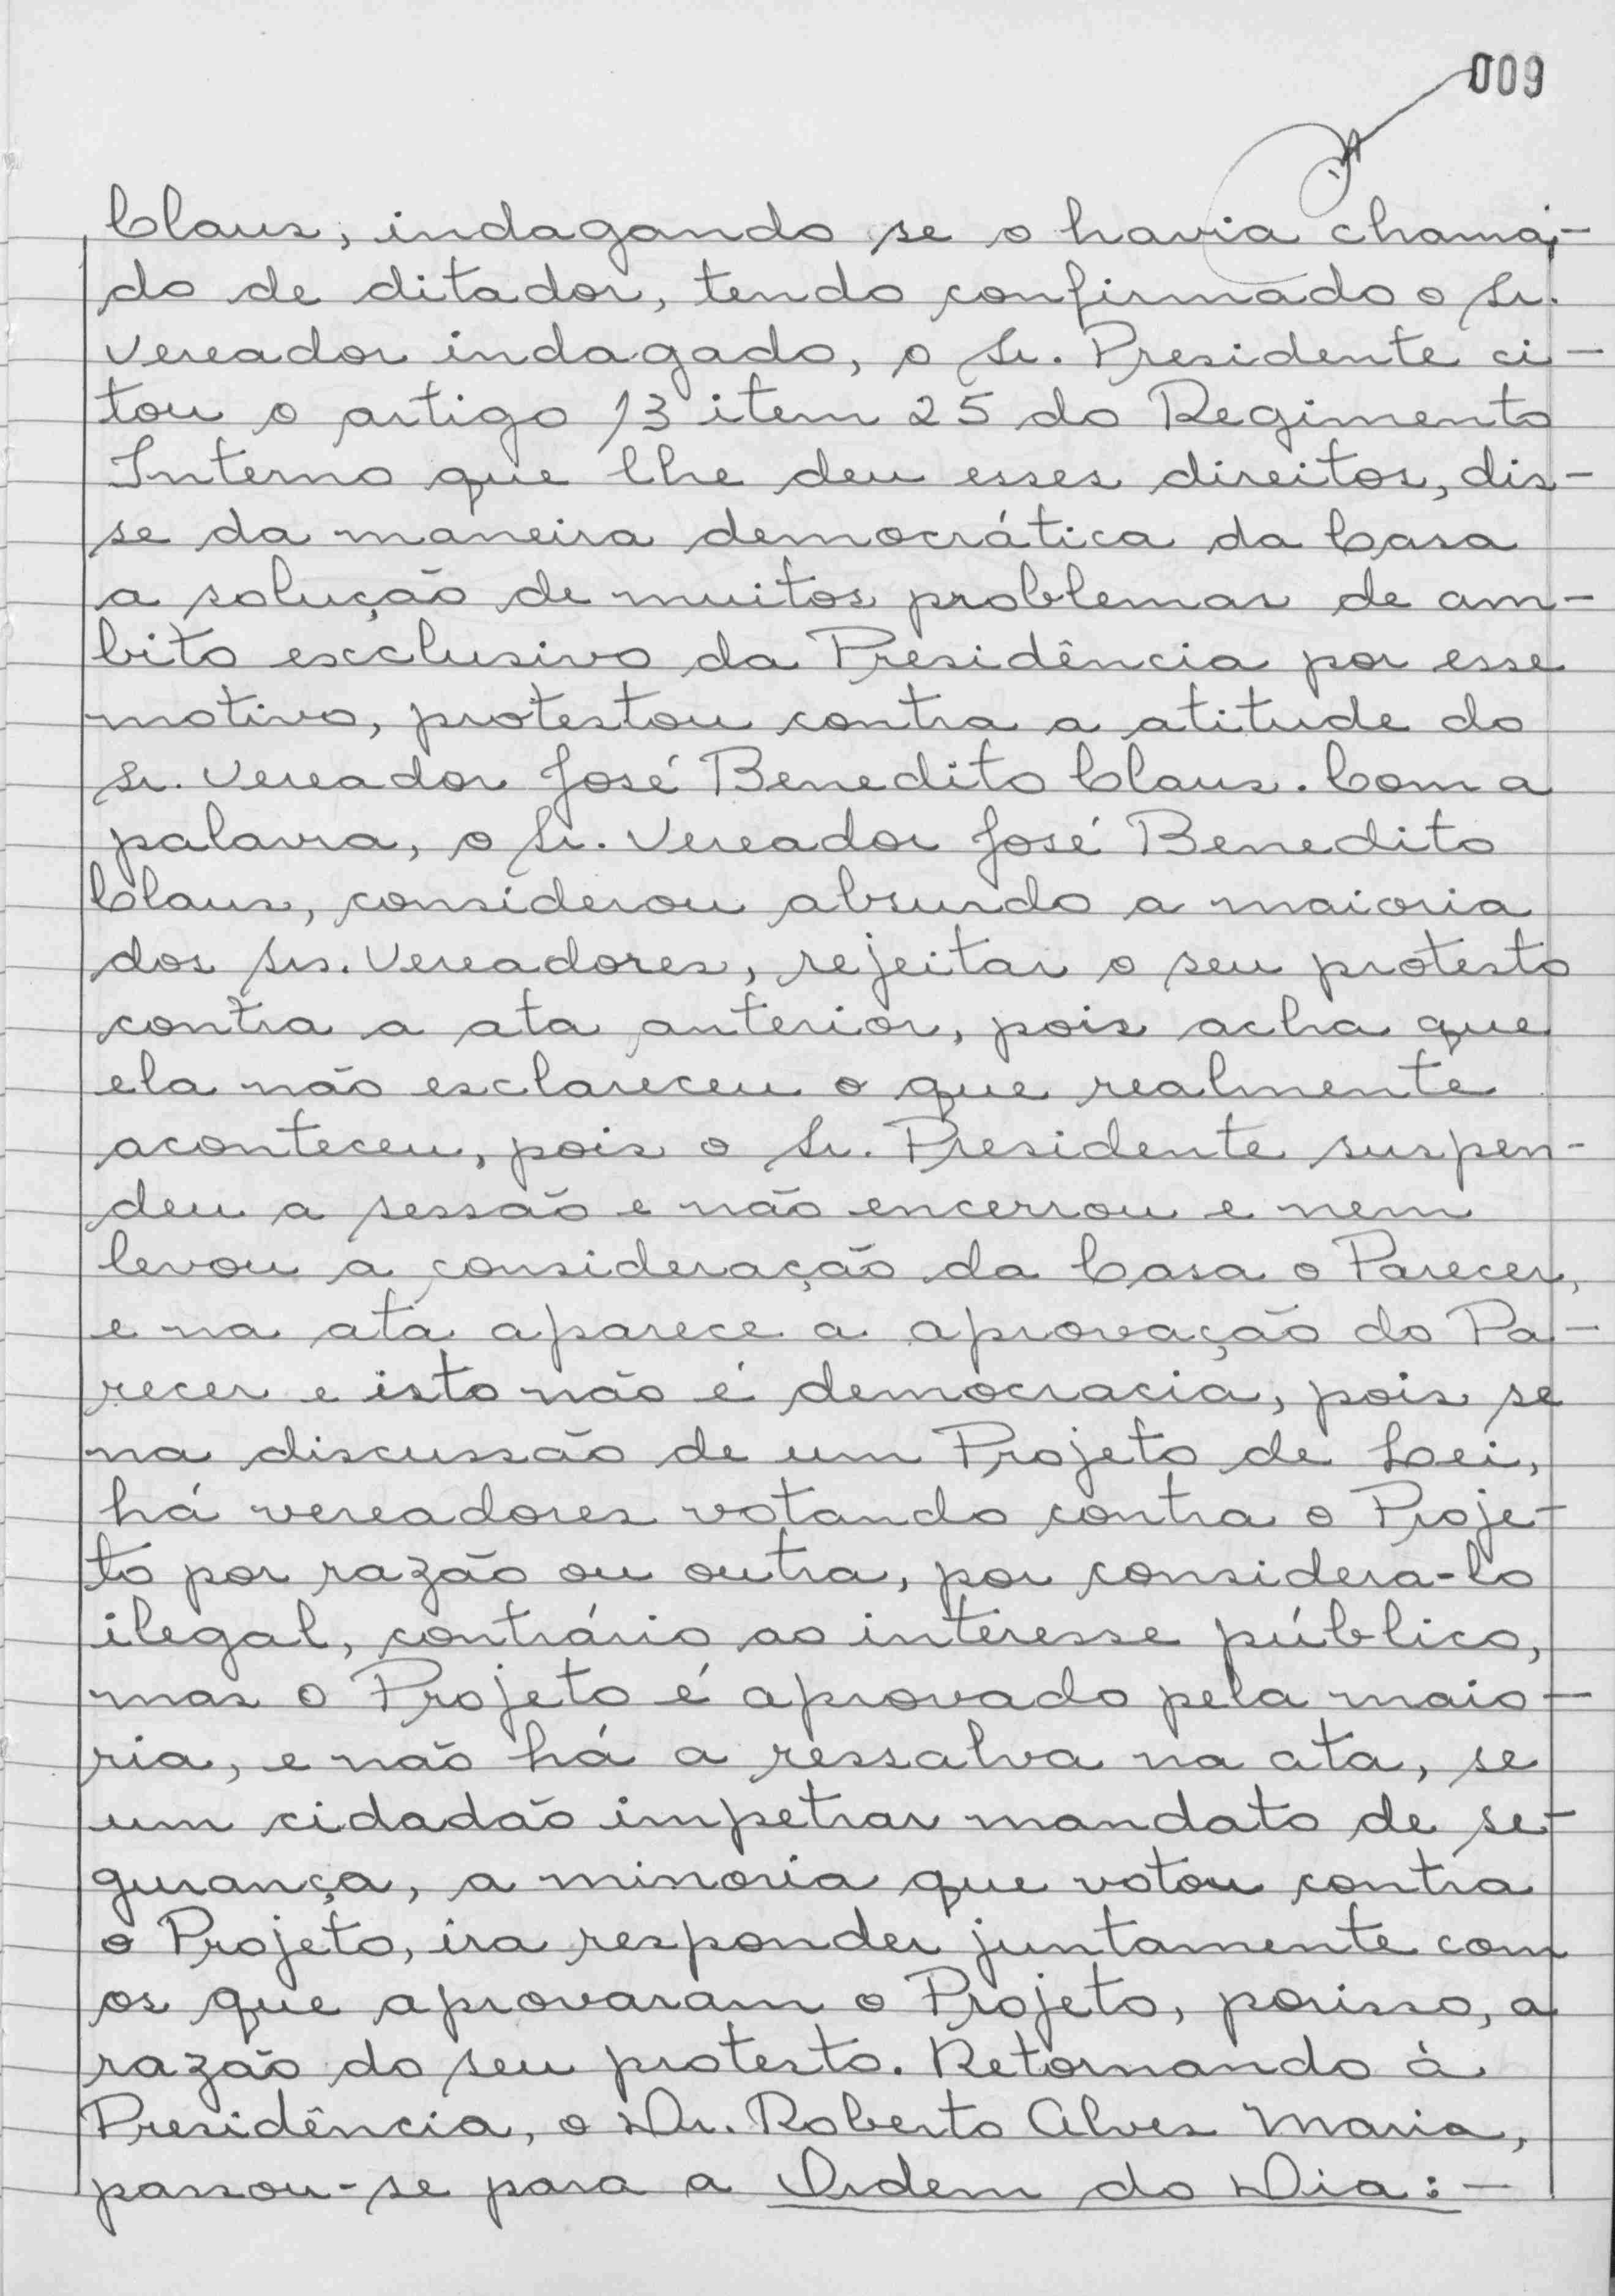 009
Claus, indagando se o havia chama-
do de ditador, tendo confirmado o Sr.
Vereador indagado, o Sr. Presidente ci-
tou o artigo 13 item 25 do Regimento
Interno que lhe deu esses direitos, dis-
se da maneira democrática da Casa
a solução de muitos problemas de am-
bito escclusivo da Presidência por esse
motivo, protestou contra a atitude do
Sr. Vereador José Benedito Claus. Com a
palavra, o Sr. Vereador José Benedito
Claus, considerou absurdo a maioria
dos Srs. Vereadores, rejeitar o seu protesto
contra a ata anterior, pois acha que
ela não esclareceu o que realmente
aconteceu, pois o Sr. Presidente suspen-
deu a sessão e não encerrou e nem
levou a consideração da Casa o Parecer,
e na ata aparece a aprovação do Pa-
recer e isto não é democracia, pois se
na discussão de um Projeto de Lei,
há vereadores votando contra o Proje-
to por razão ou outra, por considera-lo
ilegal, contrário ao interesse público,
mas o Projeto é aprovado pela maio-
ria, e não há a ressalva na ata, se
um cidadão impetrar mandato de se-
gurança, a minoria que votou contra
o Projeto, ira responder juntamente com
os que aprovaram o Projeto, porisso, a
razão do seu protesto. Retornando à
Presidência, o Dr. Roberto Alves Maria,
passou-se para a Ordem do Dia:-